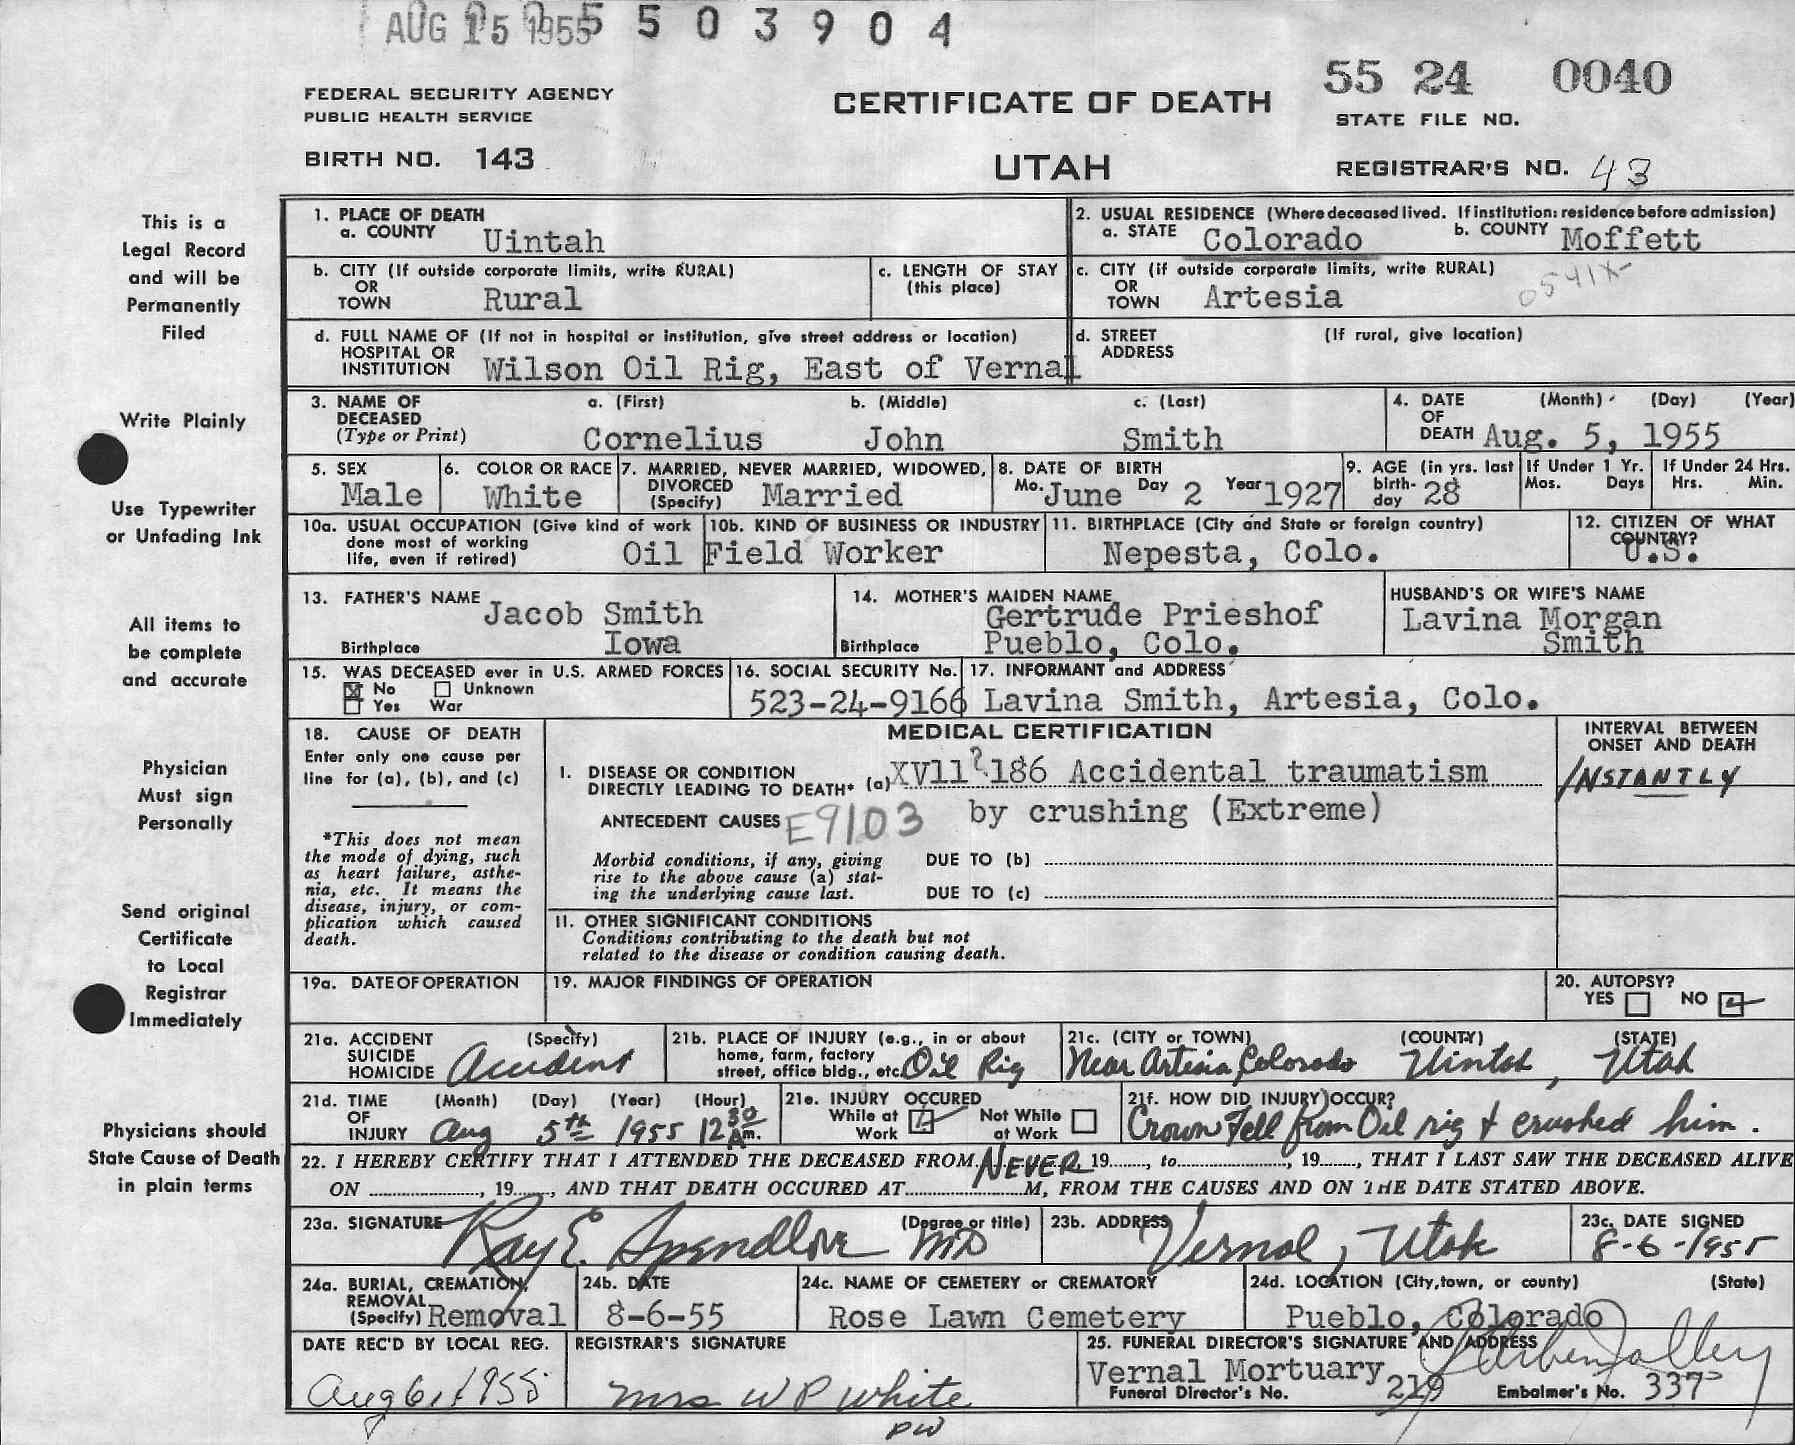 AUG 15 1955 5 5 0 3 9 0 4
FEDERAL SECURITY AGENCY
PUBLIC HEALTH SERVICE
BIRTH NO. 143
CERTIFICATE OF DEATH
UTAH
55 24 0040
STATE FILE NO.
REGISTRAR'S NO. 43
This is a
Legal Record
and will be
Permanently
Filed
Write Plainly
Use Typewriter
or Unfading Ink
All items to
be complete
and accurate
Physician
Must sign
Personally
Send original
Certificate
to Local
Registrar
Immediately
Physicians should
State Cause of Death
in plain terms
1. PLACE OF DEATH
a. COUNTY Uintah
2. USUAL RESIDENCE (Where deceased lived. If institution: residence before admission)
a. STATE Colorado b. COUNTY Moffett
b. CITY (If outside corporate limits, write RURAL)
OR
TOWN Rural
c. LENGTH OF STAY
(this place)
c. CITY (if outside corporate limits, write RURAL)
OR
TOWN Artesia
0541X-
d. FULL NAME OF (If not in hospital or institution, give street address or location)
HOSPITAL OR
INSTITUTION Wilson Oil Rig, East of Vernal
d. STREET (If rural, give location)
ADDRESS
3. NAME OF DECEASED (Type or Print)
a. (First) b. (Middle) c. (Last)
Cornelius John Smith
4. DATE OF DEATH (Month) (Day) (Year)
Aug. 5, 1955
5. SEX
Male
6. COLOR OR RACE
White
7. MARRIED, NEVER MARRIED, WIDOWED,
DIVORCED
(Specify) Married
8. DATE OF BIRTH
Mo. June Day 2 Year 1927
9. AGE (in yrs. last
birth-
day 28
If Under 1 Yr.
Mos. Days
If Under 24 Hrs.
Hrs. Min.
10a. USUAL OCCUPATION (Give kind of work
done most of working
life, even if retired)
10b. KIND OF BUSINESS OR INDUSTRY
Oil Field Worker
11. BIRTHPLACE (City and State or foreign country)
Nepesta, Colo.
12. CITIZEN OF WHAT
COUNTRY?
U.S.
13. FATHER'S NAME Jacob Smith
Birthplace Iowa
14. MOTHER'S MAIDEN NAME
Gertrude Prieshof
Birthplace Pueblo, Colo.
HUSBAND'S OR WIFE'S NAME
Lavina Morgan
Smith
15. WAS DECEASED ever in U.S. ARMED FORCES
No Unknown
Yes War
16. SOCIAL SECURITY No.
523-24-9166
17. INFORMANT and ADDRESS
Lavina Smith, Artesia, Colo.
18. CAUSE OF DEATH
Enter only one cause per
line for (a), (b), and (c)
*This does not mean
the mode of dying, such
as heart failure, asthe-
nia, etc. It means the
disease, injury, or com-
plication which caused
death.
MEDICAL CERTIFICATION
I. DISEASE OR CONDITION
DIRECTLY LEADING TO DEATH* (a) XVll ? 186 Accidental traumatism
by crushing (Extreme)
ANTECEDENT CAUSES E9103
Morbid conditions, if any, giving
rise to the above cause (a) stat-
ing the underlying cause last.
DUE TO (b)
DUE TO (c)
II. OTHER SIGNIFICANT CONDITIONS
Conditions contributing to the death but not
related to the disease or condition causing death.
INTERVAL BETWEEN
ONSET AND DEATH
INSTANTLY
19a. DATE OF OPERATION
19. MAJOR FINDINGS OF OPERATION
20. AUTOPSY?
YES NO
21a. ACCIDENT (Specify)
SUICIDE
HOMICIDE Accident
21b. PLACE OF INJURY (e.g., in or about
home, farm, factory
street, office bldg., etc. Oil Rig
21c. (CITY or TOWN) (COUNTY) (STATE)
Near Artesia, Colorado Uintah, Utah
21d. TIME (Month) (Day) (Year) (Hour)
OF
INJURY Aug 5th 1955 12 30 Am.
21e. INJURY OCCURED
While at Work Not While at Work
21f. HOW DID INJURY OCCUR?
Crown Fell from Oil rig & crushed him.
22. I HEREBY CERTIFY THAT I ATTENDED THE DECEASED FROM NEVER 19......, to..................., 19......, THAT I LAST SAW THE DECEASED ALIVE
ON ..................., 19......, AND THAT DEATH OCCURED AT...................M, FROM THE CAUSES AND ON THE DATE STATED ABOVE.
23a. SIGNATURE (Degree or title)
Ray E. Spendlove MD
23b. ADDRESS
Vernal, Utah
23c. DATE SIGNED
8-6-1955
24a. BURIAL, CREMATION,
REMOVAL
(Specify) Removal
24b. DATE
8-6-55
24c. NAME OF CEMETERY or CREMATORY
Rose Lawn Cemetery
24d. LOCATION (City, town, or county) (State)
Pueblo, Colorado
DATE REC'D BY LOCAL REG.
Aug 6, 1955
REGISTRAR'S SIGNATURE
Mrs W P White
PW
25. FUNERAL DIRECTOR'S SIGNATURE AND ADDRESS
Vernal Mortuary
Funeral Director's No. 219 Embalmer's No. 337